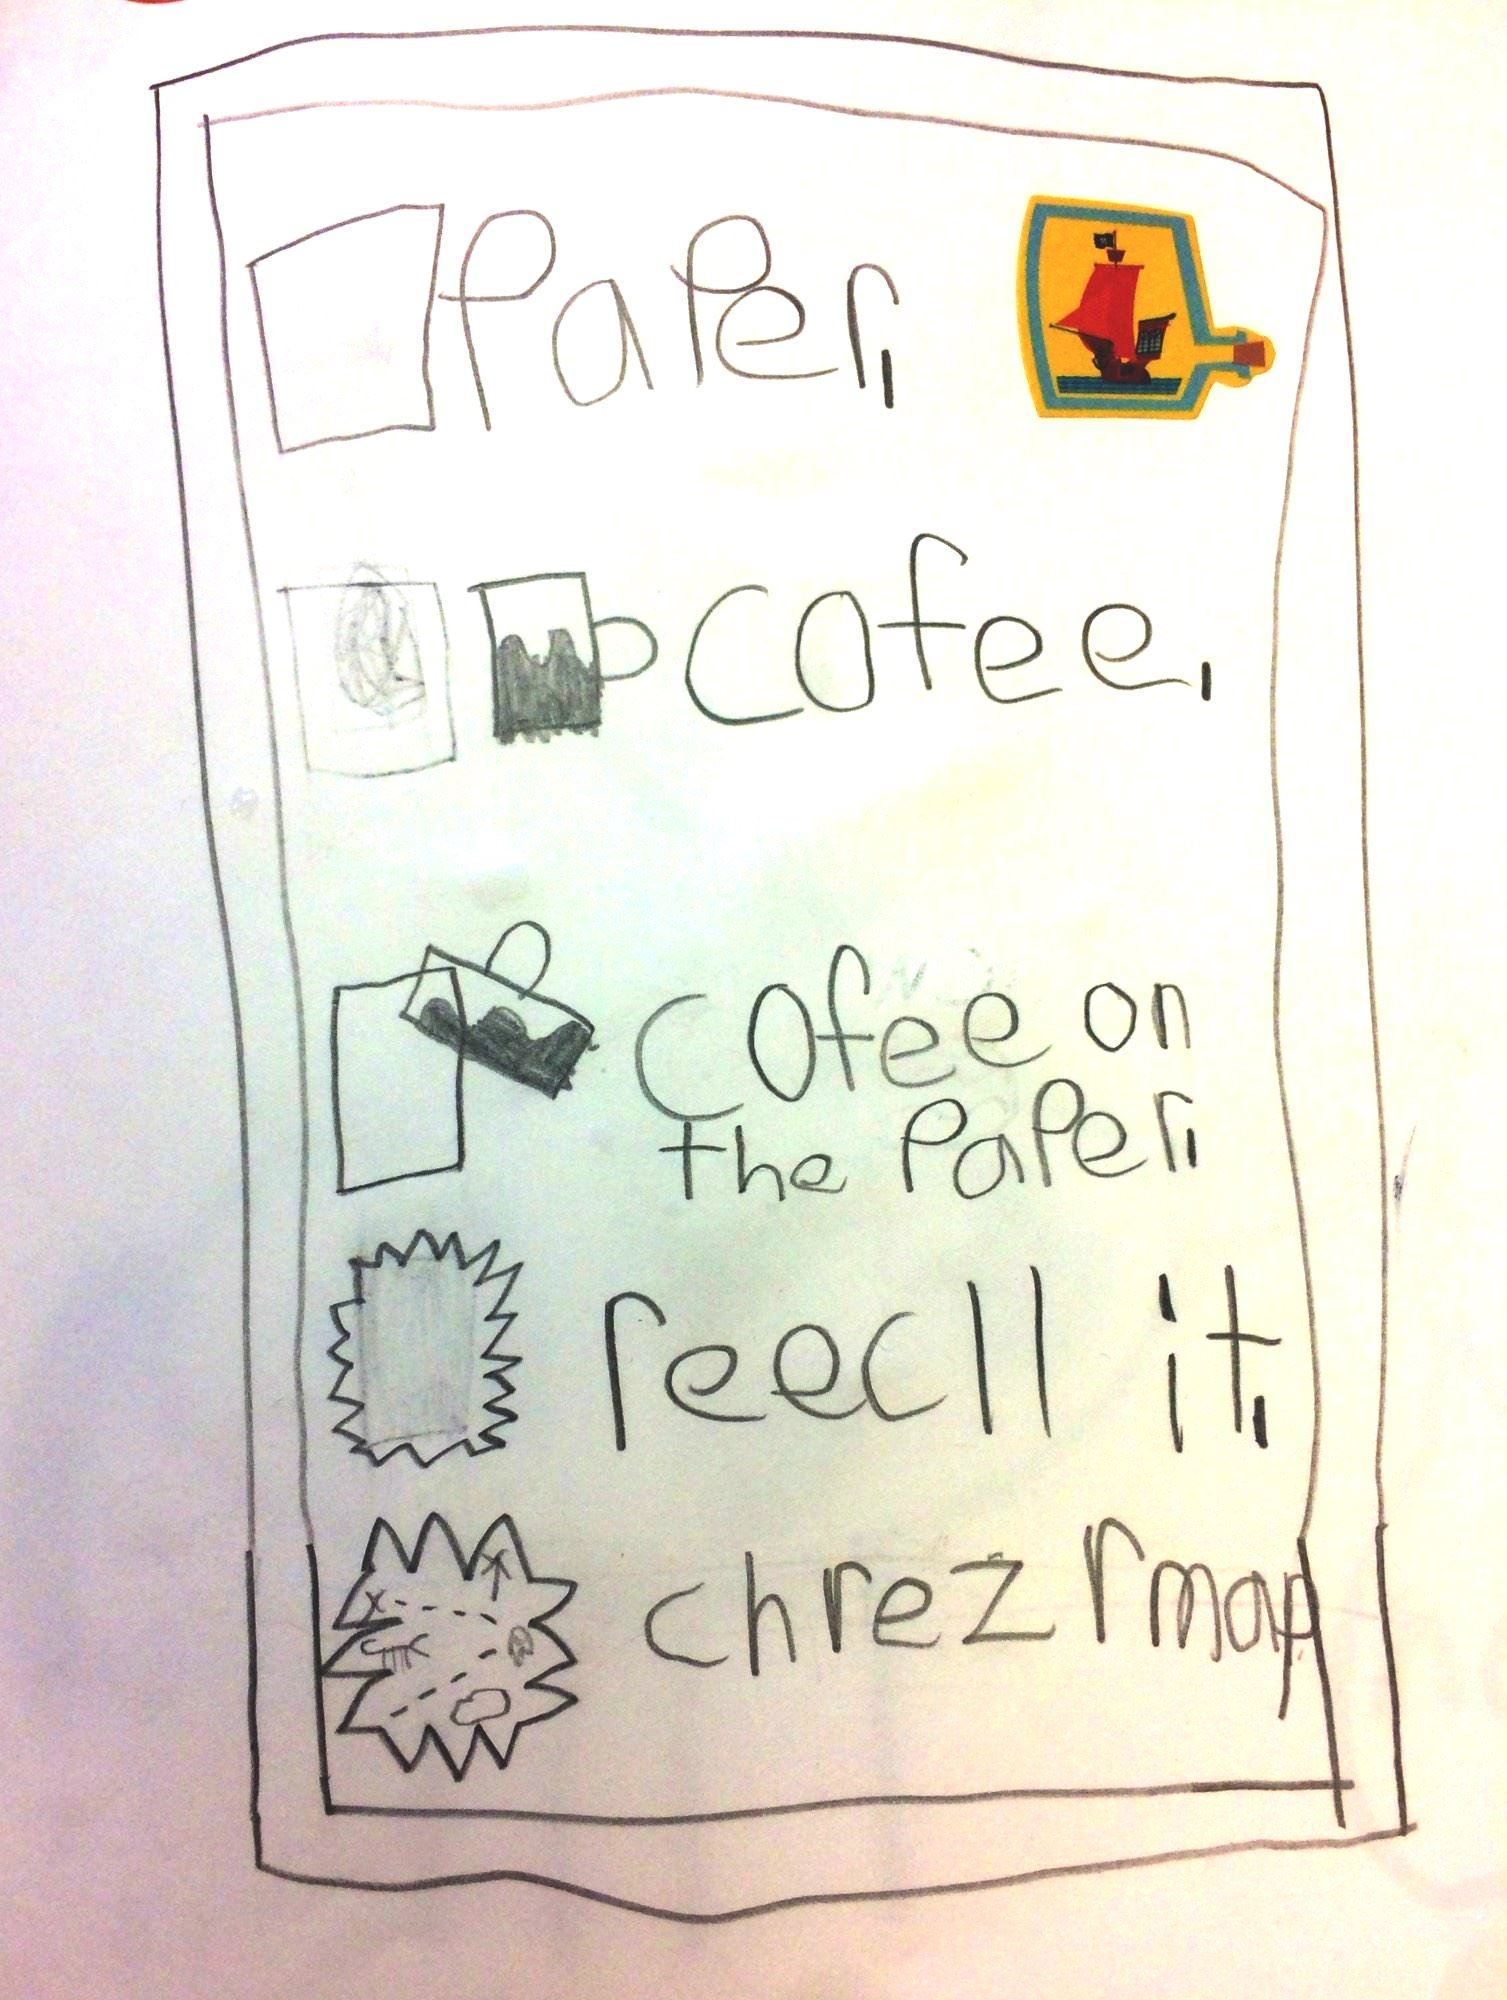 Paper,
cofee.
cofee on
the Paper,
reecll it.
chrezr map